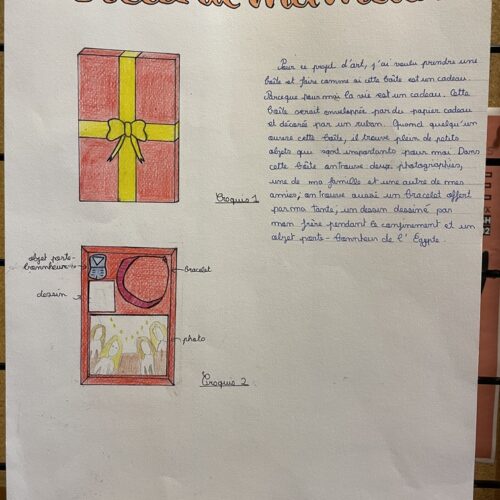 Pour ce projet d'art, j'ai voulu prendre une
boîte et faire comme si cette boîte est un cadeau.
Parceque pour moi la vie est un cadeau. Cette
boîte serait enveloppée par du papier cadeau
et décorée par un ruban. Quand quelqu'un
ouvre cette boîte, il trouve plein de petits
objets qui sont importants pour moi. Dans
cette boîte on trouve deux photographies,
une de ma famille et une autre de mes
amies, on trouve aussi un Bracelet offert
par ma tante, un dessin dessiné par
mon frère pendant le confinement et un
objet porte-bonheur de l'Egypte.
Croquis 1
objet porte-
bonnheur
bracelet
dessin
photo
Croquis 2